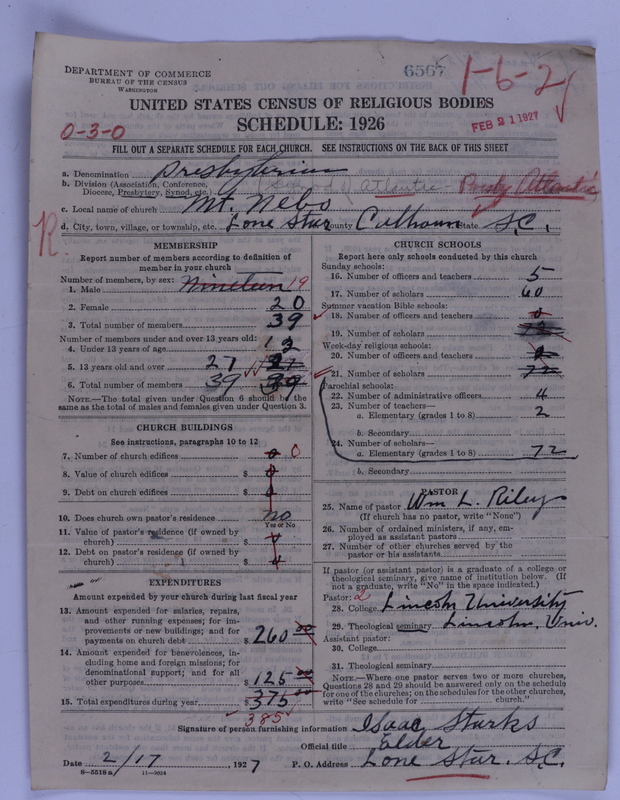 DEPARTMENT OF COMMERCE
BUREAU OF THE CENSUS
WASHINGTON
6567
1-6-2
UNITED STATES CENSUS OF RELIGIOUS BODIES
SCHEDULE: 1926
FEB 21 1927
0-3-0
FILL OUT A SEPARATE SCHEDULE FOR EACH CHURCH. SEE INSTRUCTIONS ON THE BACK OF THIS SHEET
a. Denomination Presbyterian
b. Division (Association, Conference, Diocese, Presbytery, Synod, etc.) (Synod of Atlantic - Presby Atlantic)
c. Local name of church Mt. Nebo
R.
d. City, town, village, or township, etc. Lone Star County Calhoun State S.C.
MEMBERSHIP
Report number of members according to definition of
member in your church
Number of members, by sex:
1. Male Nineteen 19
2. Female 20
3. Total number of members 39
Number of members under and over 13 years old:
4. Under 13 years of age 12
5. 13 years old and over 27
6. Total number of members 39 39
NOTE.—The total given under Question 6 should be the
same as the total of males and females given under Question 3.
CHURCH BUILDINGS
See instructions, paragraphs 10 to 12
7. Number of church edifices 0 0
8. Value of church edifices $ 0
9. Debt on church edifices $ 0
10. Does church own pastor's residence no
Yes or No
11. Value of pastor's residence (if owned by
church) $ 0
12. Debt on pastor's residence (if owned by
church) $ 0
EXPENDITURES
Amount expended by your church during last fiscal year
13. Amount expended for salaries, repairs,
and other running expenses; for im-
provements or new buildings; and for
payments on church debt $ 260 00
14. Amount expended for benevolences, in-
cluding home and foreign missions; for
denominational support; and for all
other purposes $ 125 00
15. Total expenditures during year $ 375
385
CHURCH SCHOOLS
Report here only schools conducted by this church
Sunday schools:
16. Number of officers and teachers 5
17. Number of scholars 60
Summer vacation Bible schools:
18. Number of officers and teachers 0
19. Number of scholars
Week-day religious schools:
20. Number of officers and teachers
21. Number of scholars 72
Parochial schools:
22. Number of administrative officers 4
23. Number of teachers—
a. Elementary (grades 1 to 8) 2
b. Secondary
24. Number of scholars—
a. Elementary (grades 1 to 8) 72
b. Secondary
PASTOR
25. Name of pastor Wm L. Riley
(If church has no pastor, write "None")
26. Number of ordained ministers, if any, em-
ployed as assistant pastors
27. Number of other churches served by the
pastor or his assistants
If pastor (or assistant pastor) is a graduate of a college or
theological seminary, give name of institution below. (If
not a graduate, write "No" in the space indicated.)
Pastor: 2
28. College Lincoln University
29. Theological seminary Lincoln, Univ.
Assistant pastor:
30. College
31. Theological seminary
NOTE.—Where one pastor serves two or more churches,
Questions 28 and 29 should be answered only on the schedule
for one of the churches; on the schedules for the other churches,
write "See schedule for church."
Signature of person furnishing information Isaac Starks
Official title Elder
Date 2/17, 1927 P. O. Address Lone Star. S.C.
8-5518a 11-9024